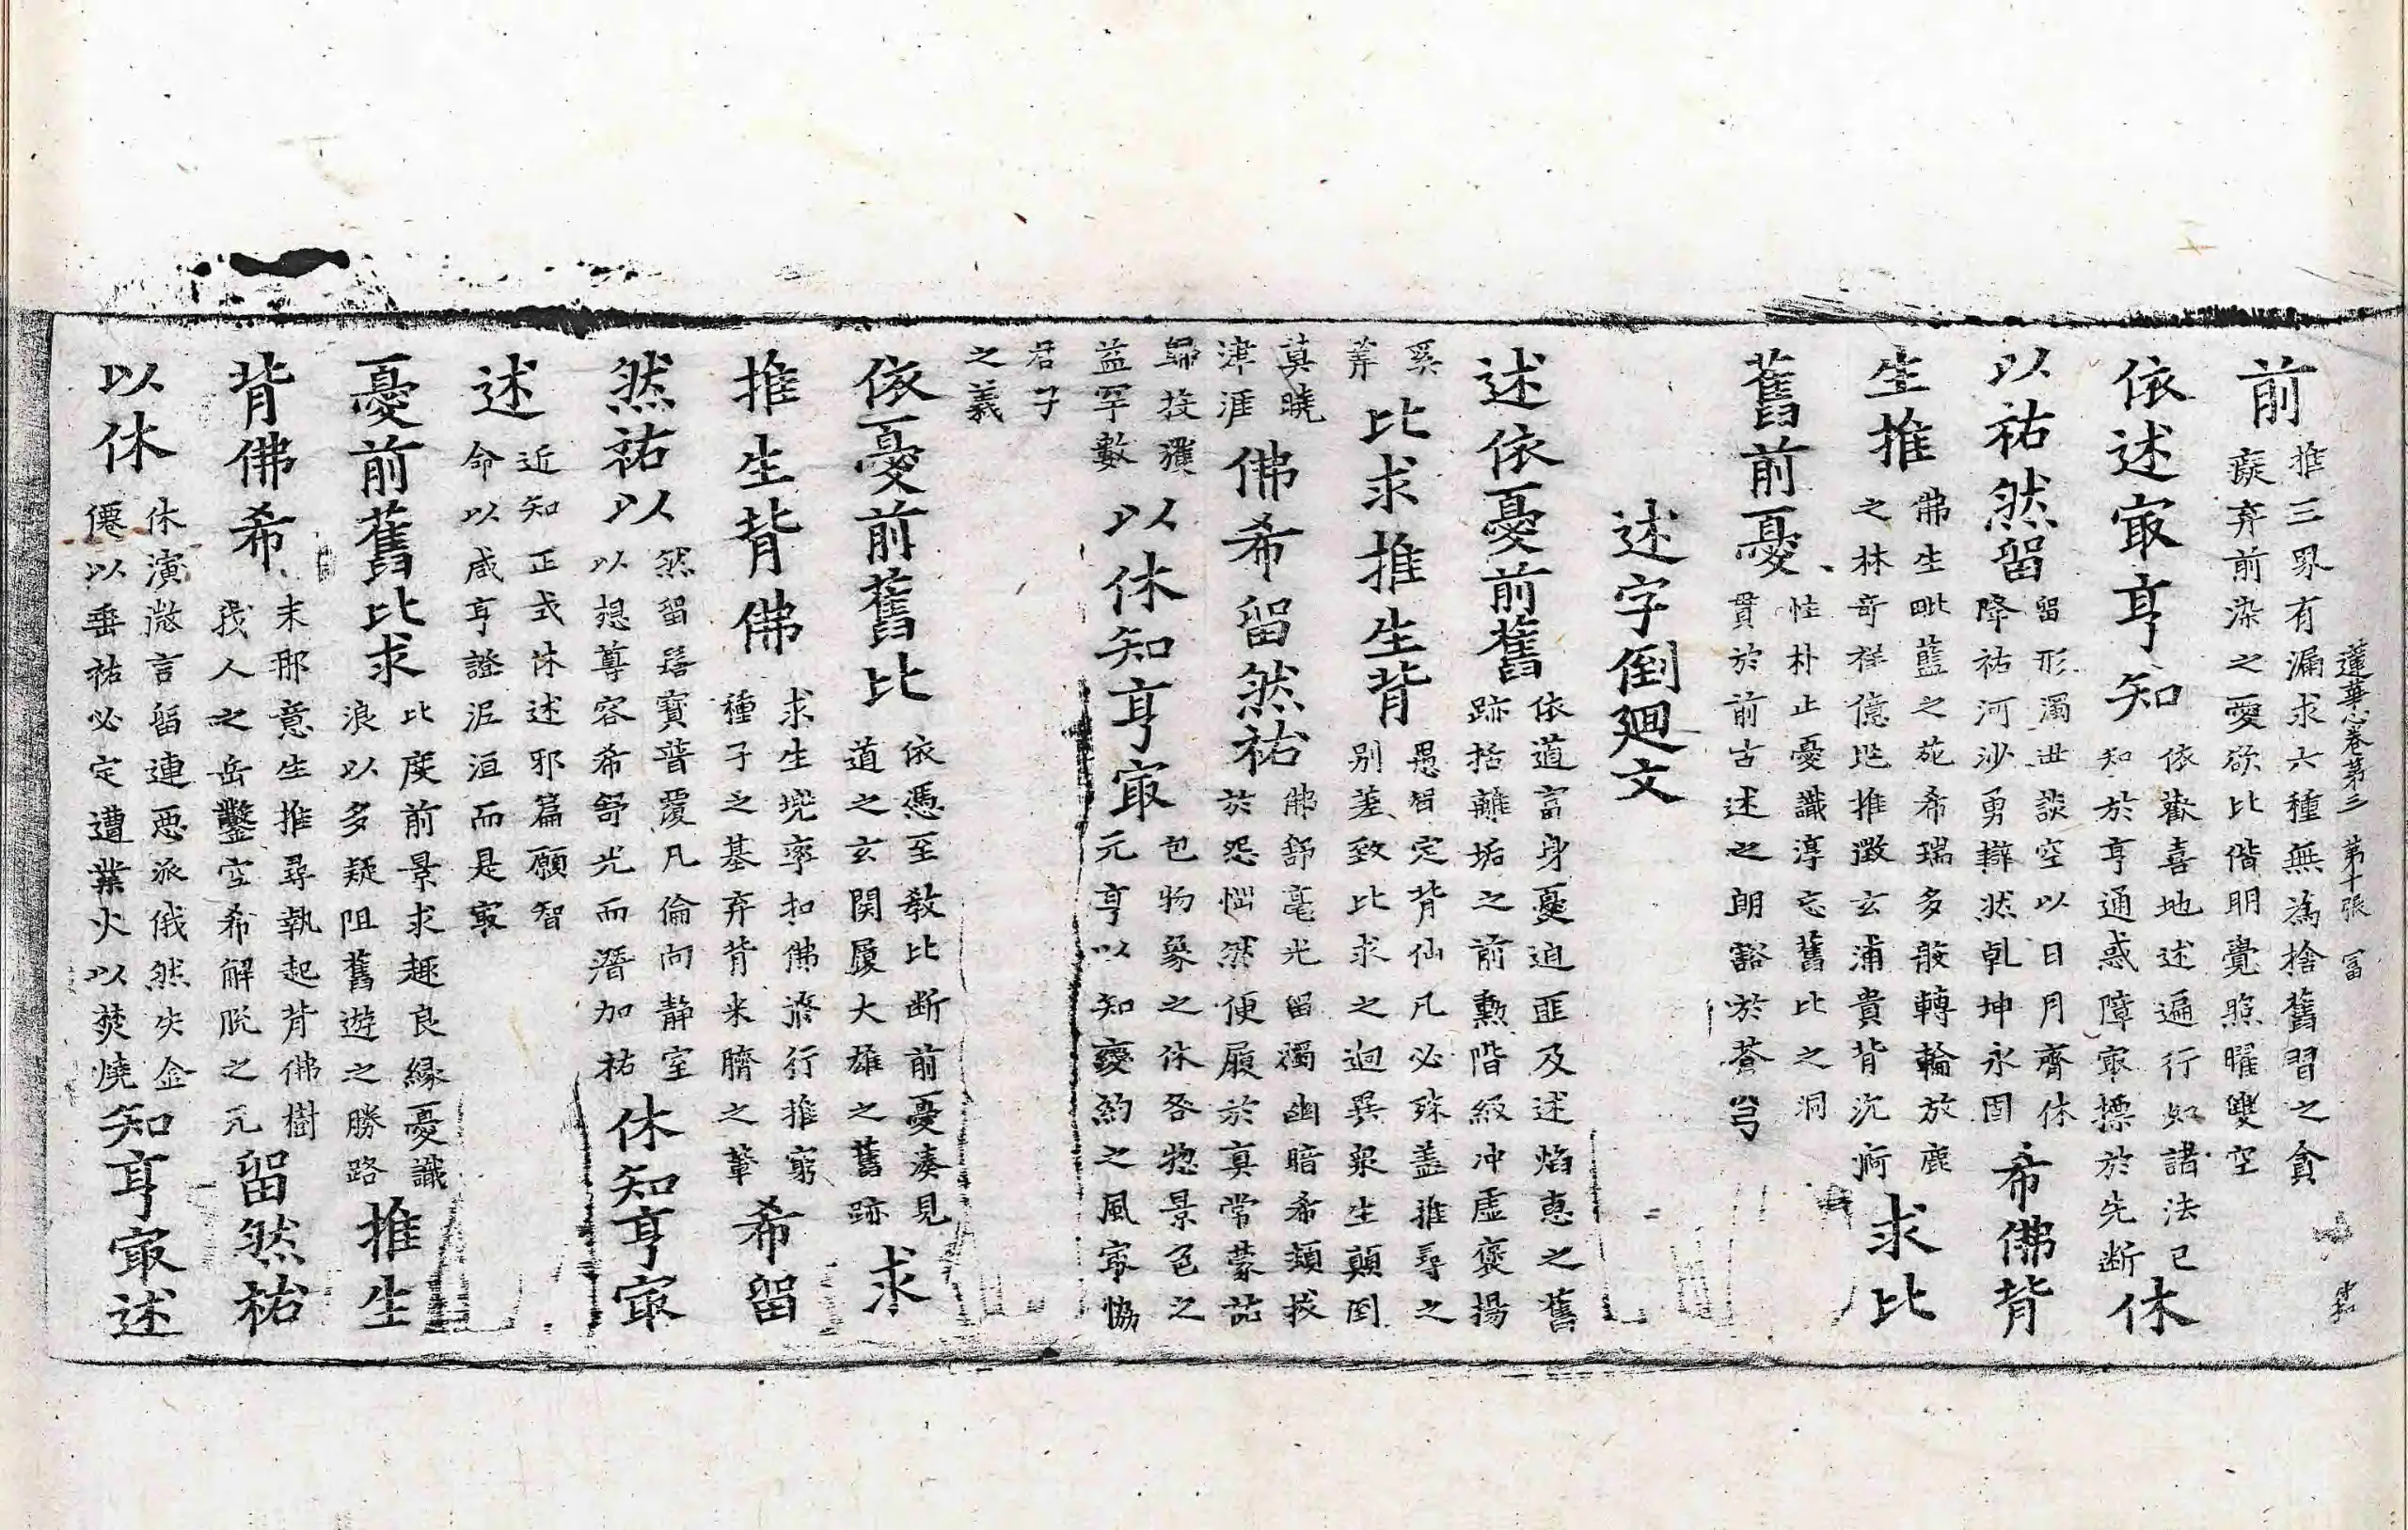 蓮華心卷第三　第十張　冨
前
推三界有漏求六種無為捨舊習之貪
癡弃前染之愛欲比偕明覺照曜雙空
依述㝡亨知
依歡喜地述遍行如諸法已
知於亨通惑障㝡摽於先断
休
以祐然留
留形濁世談空以日月齊休
降祐河沙勇辯然乹坤永固
希佛背
生推
佛生毗藍之苑希瑞多般轉輪放鹿
之林奇祥億兆推徵玄浦貴背沉痾
求比
舊前憂
性朴止憂識淳忘舊比之洞
貫於前古述之朗豁於蒼穹
述字倒廻文
述依憂前舊
依道富身憂迫匪及述焰惠之舊
跡括離垢之前勲階級冲虛褒揚
奚
筭
比求推生背
愚智定背仙凡必殊蓋推尋之
别差致比求之迥異衆生顛倒
莫曉
津涯
佛希留然祐
佛舒毫光留濁幽暗希頻拔
於怨惱然便履於真常蒙茲
歸投獲
益罕數
以休知亨㝡
包物象之休咎惣景色之
元亨以知變約之風㝡恊
君子
之義
依憂前舊比
依憑至教比断前憂凑見
道之玄関履大雄之舊跡
求
推生背佛
求生兜率扣佛脩行推窮
種子之基弃背来臍之輩
希留
然祐以
然留髻寶普覆凡倫向静室
以想尊容希舒光而潛加祐
休知亨㝡
述
近知正式休述邪篇願智
命以咸亨證泥洹而是㝡
憂前舊比求
比度前景求趣良縁憂識
浪以多疑阻舊遊之勝路
推生
背佛希
末那意生推尋執起背佛樹
我人之岳鑿空希解脫之元
留然祐
以休
休演微言留連惡派俄然失金
僊以垂祐必定遭業火以焚燒
知亨㝡述